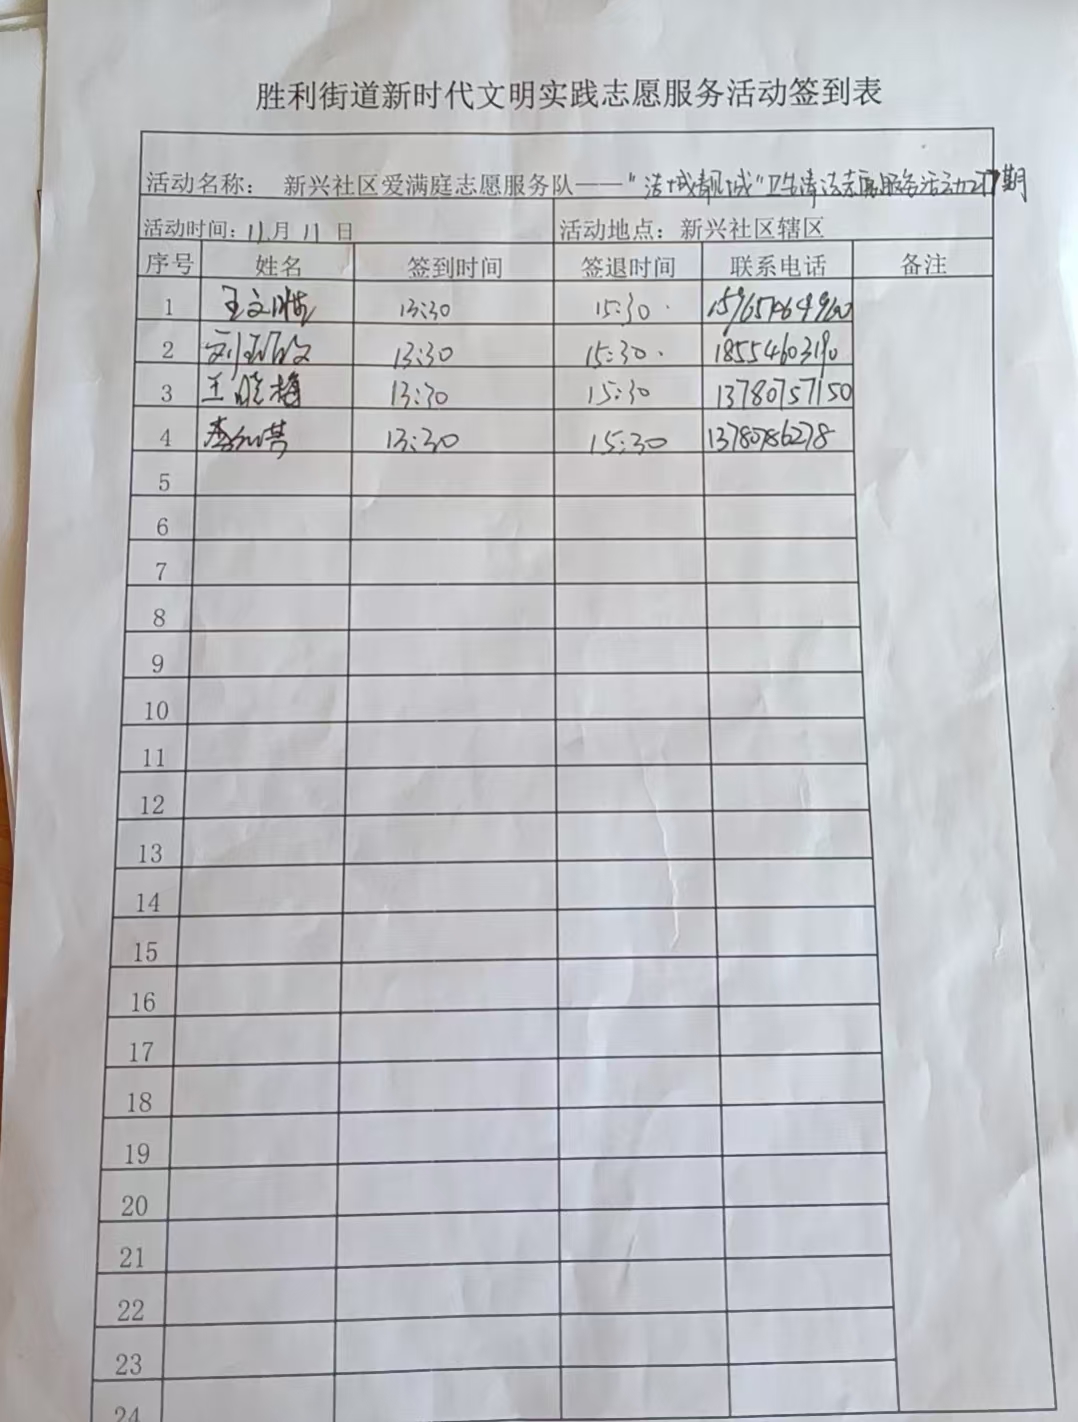 胜利街道新时代文明实践志愿服务活动签到表
活动名称: 新兴社区爱满庭志愿服务队——"洁城靓城"卫生清洁志愿服务活动27期
活动时间: 11月 11 日 活动地点: 新兴社区辖区
序号 姓名 签到时间 签退时间 联系电话 备注
1 王文 13:30 15:30
2 刘 13:30 15:30 18554603190
3 王晓梅 13:30 15:30 13780757150
4 李 13:30 15:30 13780786278
5
6
7
8
9
10
11
12
13
14
15
16
17
18
19
20
21
22
23
24